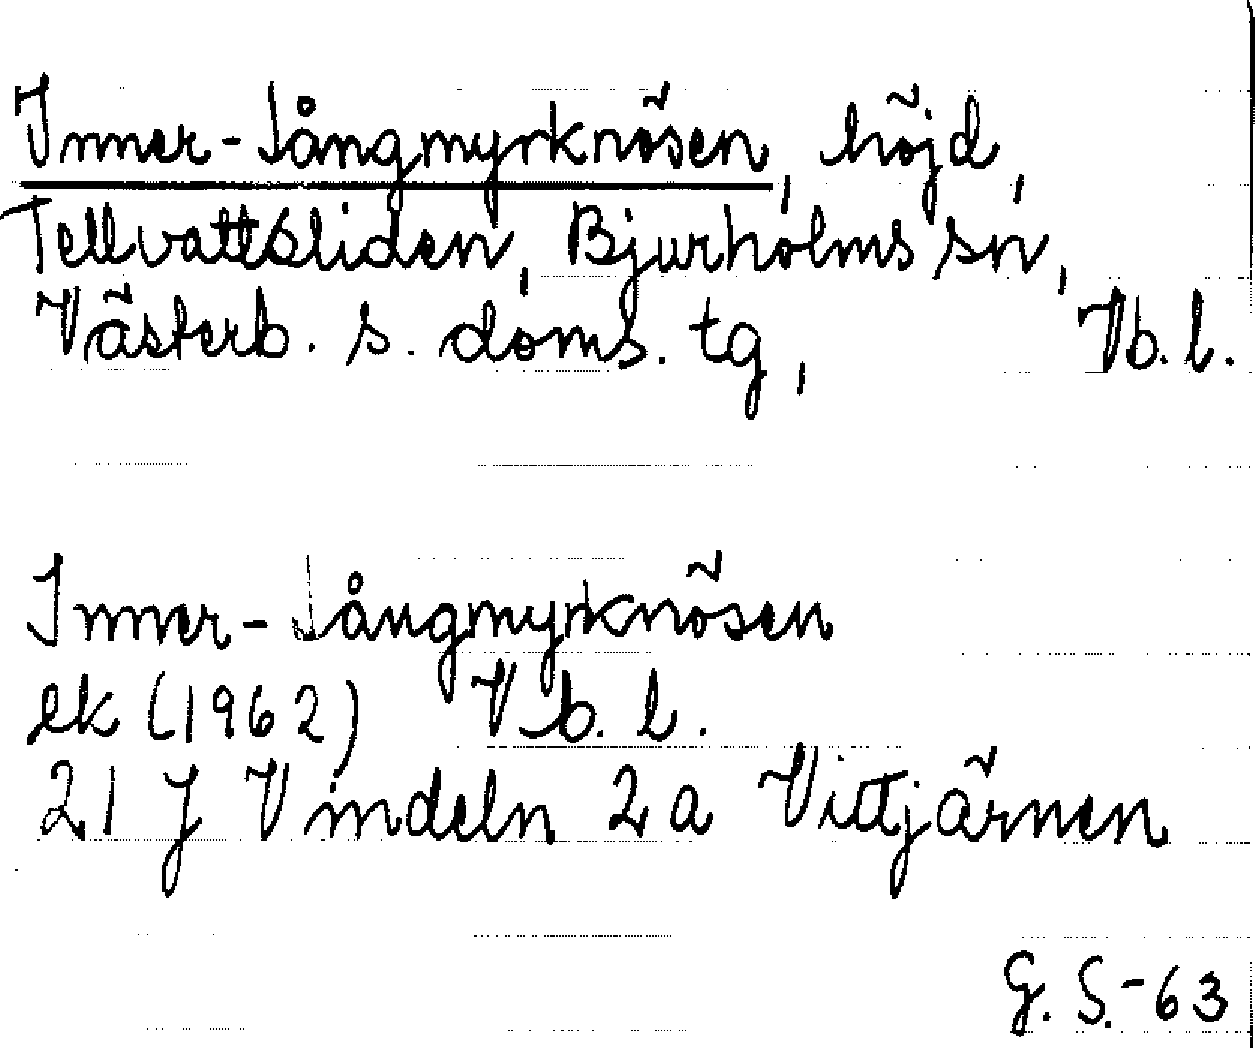 Inner-Långmyrknösen, höjd,
Tellvattsliden, Bjurholms sn,
Västerb. s. doms. tg, Vb. l.
Inner-Långmyrknösen
ek (1962) Vb. l.
21 J Vindeln 2a Vittjärnen
G. S.-63